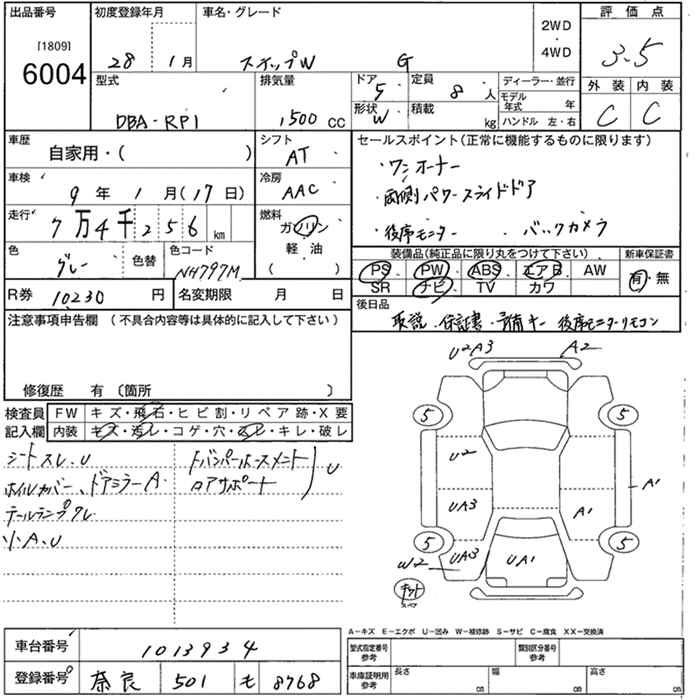 出品番号
[1809]
6004
初度登録年月
28 年 1月
車名・グレード
ステップW G
2WD
・
4WD
評価点
3.5
外装 内装
C C
型式
DBA-RP1
排気量
1500 cc
ドア
5
形状
W
定員
8 人
積載
kg
ディーラー・並行
モデル年式 年
ハンドル 左・右
車歴
自家用・( )
シフト
AT
車検
9 年 1 月 (17 日)
冷房
AAC
走行
7万4千256 km
燃料
ガソリン
軽油
( )
色
グレー
色替
色コード
NH797M
R券 10230 円
名変期限 月 日
セールスポイント(正常に機能するものに限ります)
・ワンオーナー
・両側パワースライドドア
・後席モニター ・バックカメラ
装備品(純正品に限り丸をつけて下さい)
PS PW ABS エアB AW
SR ナビ TV カワ
新車保証書
有・無
後日品
取説・保証書・予備キー 後席モニターリモコン
注意事項申告欄(不具合内容等は具体的に記入して下さい)
修復歴 有〔箇所 〕
検査員 FW キズ・飛石・ヒビ割・リペア跡・X要
記入欄 内装 キズ・汚レ・コゲ・穴・スレ・キレ・破レ
シートスレ、U
ホイルカバー、ドアミラーA
テールランプワレ
小A、U
Fバンパーホースメント
ロアサポート
U
U2A3 A2
5 5
U2
UA3 A1 A1
5 5
W2 UA3 UA1
キット
スペア
A-キズ E-エクボ U-凹み W-補修跡 S-サビ C-腐食 XX-交換済
車台番号 1013934
登録番号 奈良 501 も 8768
型式指定番号
参考
類別区分番号
参考
車庫証明用
参考
長さ cm
幅 cm
高さ cm